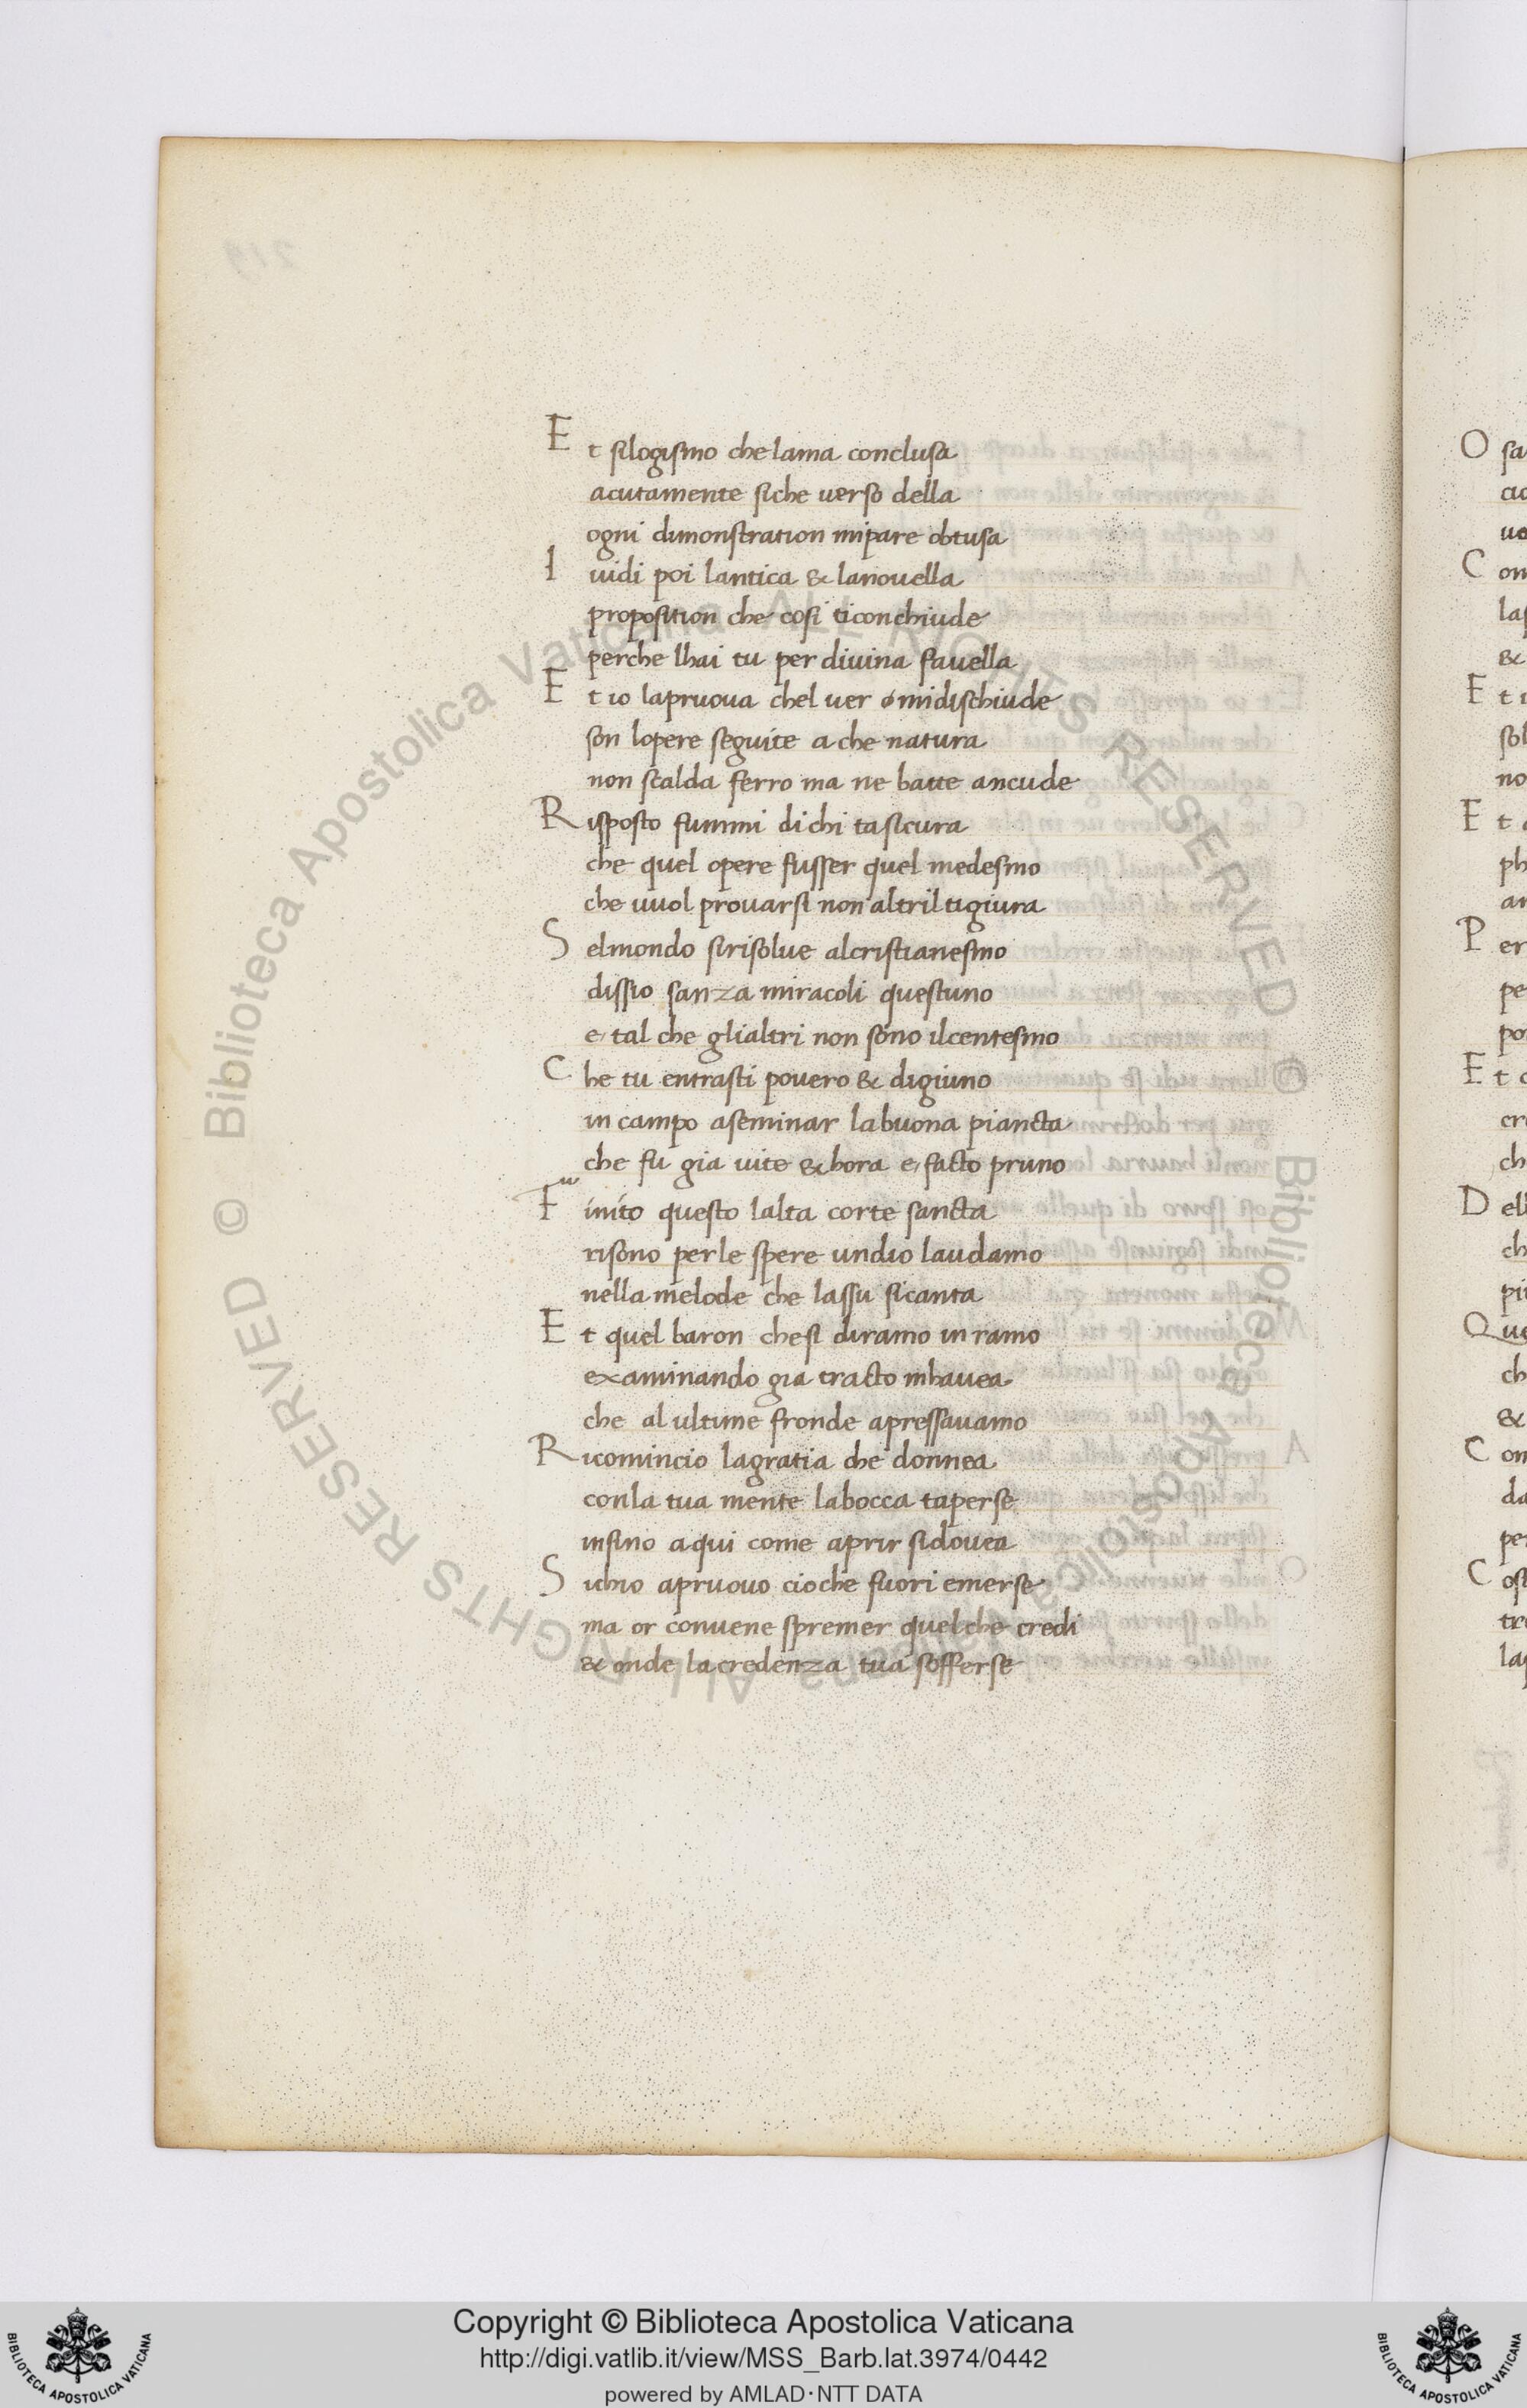 Et silogismo che lama conclusa
acutamente siche verso della
ogni dimonstration mipare obtusa
I vidi poi lantica & lanouella
proposition che cosi ticonchiude
perche lhai tu per diuina fauella
Et io lapruova chel ver midischiude
son lopere seguite a che natura
non scalda ferro ma ne batte ancude
Risposto fummi di chi tasicura
che quel opere fusser quel medesmo
che vuol provarsi non altril tigiura
Selmondo sirisolue alcristianesmo
dissio sanza miracoli questuno
e, tal che glialtri non sono ilcentesmo
Che tu entrasti pouero & digiuno
in campo aseminar labuona piancta
che fu gia uite & hora e, facto pruno
Finito questo lalta corte sancta
risono perle spere undio laudamo
nella melode che lassu sicanta
Et quel baron chesi diramo in ramo
examinando gia tracto mhauea
che al ultime fronde apressauamo
Ricomincio lagratia che donnea
conla tua mente labocca taperse
insino aqui come aprir sidouea
Sichio apruouo cioche fuori emerse
ma or convene spremer quelche credi
& onde la credenza tua sofferse
O
C
E t
E t
P er
E t
D ell
Que
C on
C ost
© Biblioteca Apostolica Vaticana ALL RIGHTS RESERVED
© Biblioteca Apostolica Vaticana ALL RIGHTS RESERVED
Copyright © Biblioteca Apostolica Vaticana
http://digi.vatlib.it/view/MSS_Barb.lat.3974/0442
powered by AMLAD·NTT DATA
BIBLIOTECA APOSTOLICA VATICANA
BIBLIOTECA APOSTOLICA VATICANA